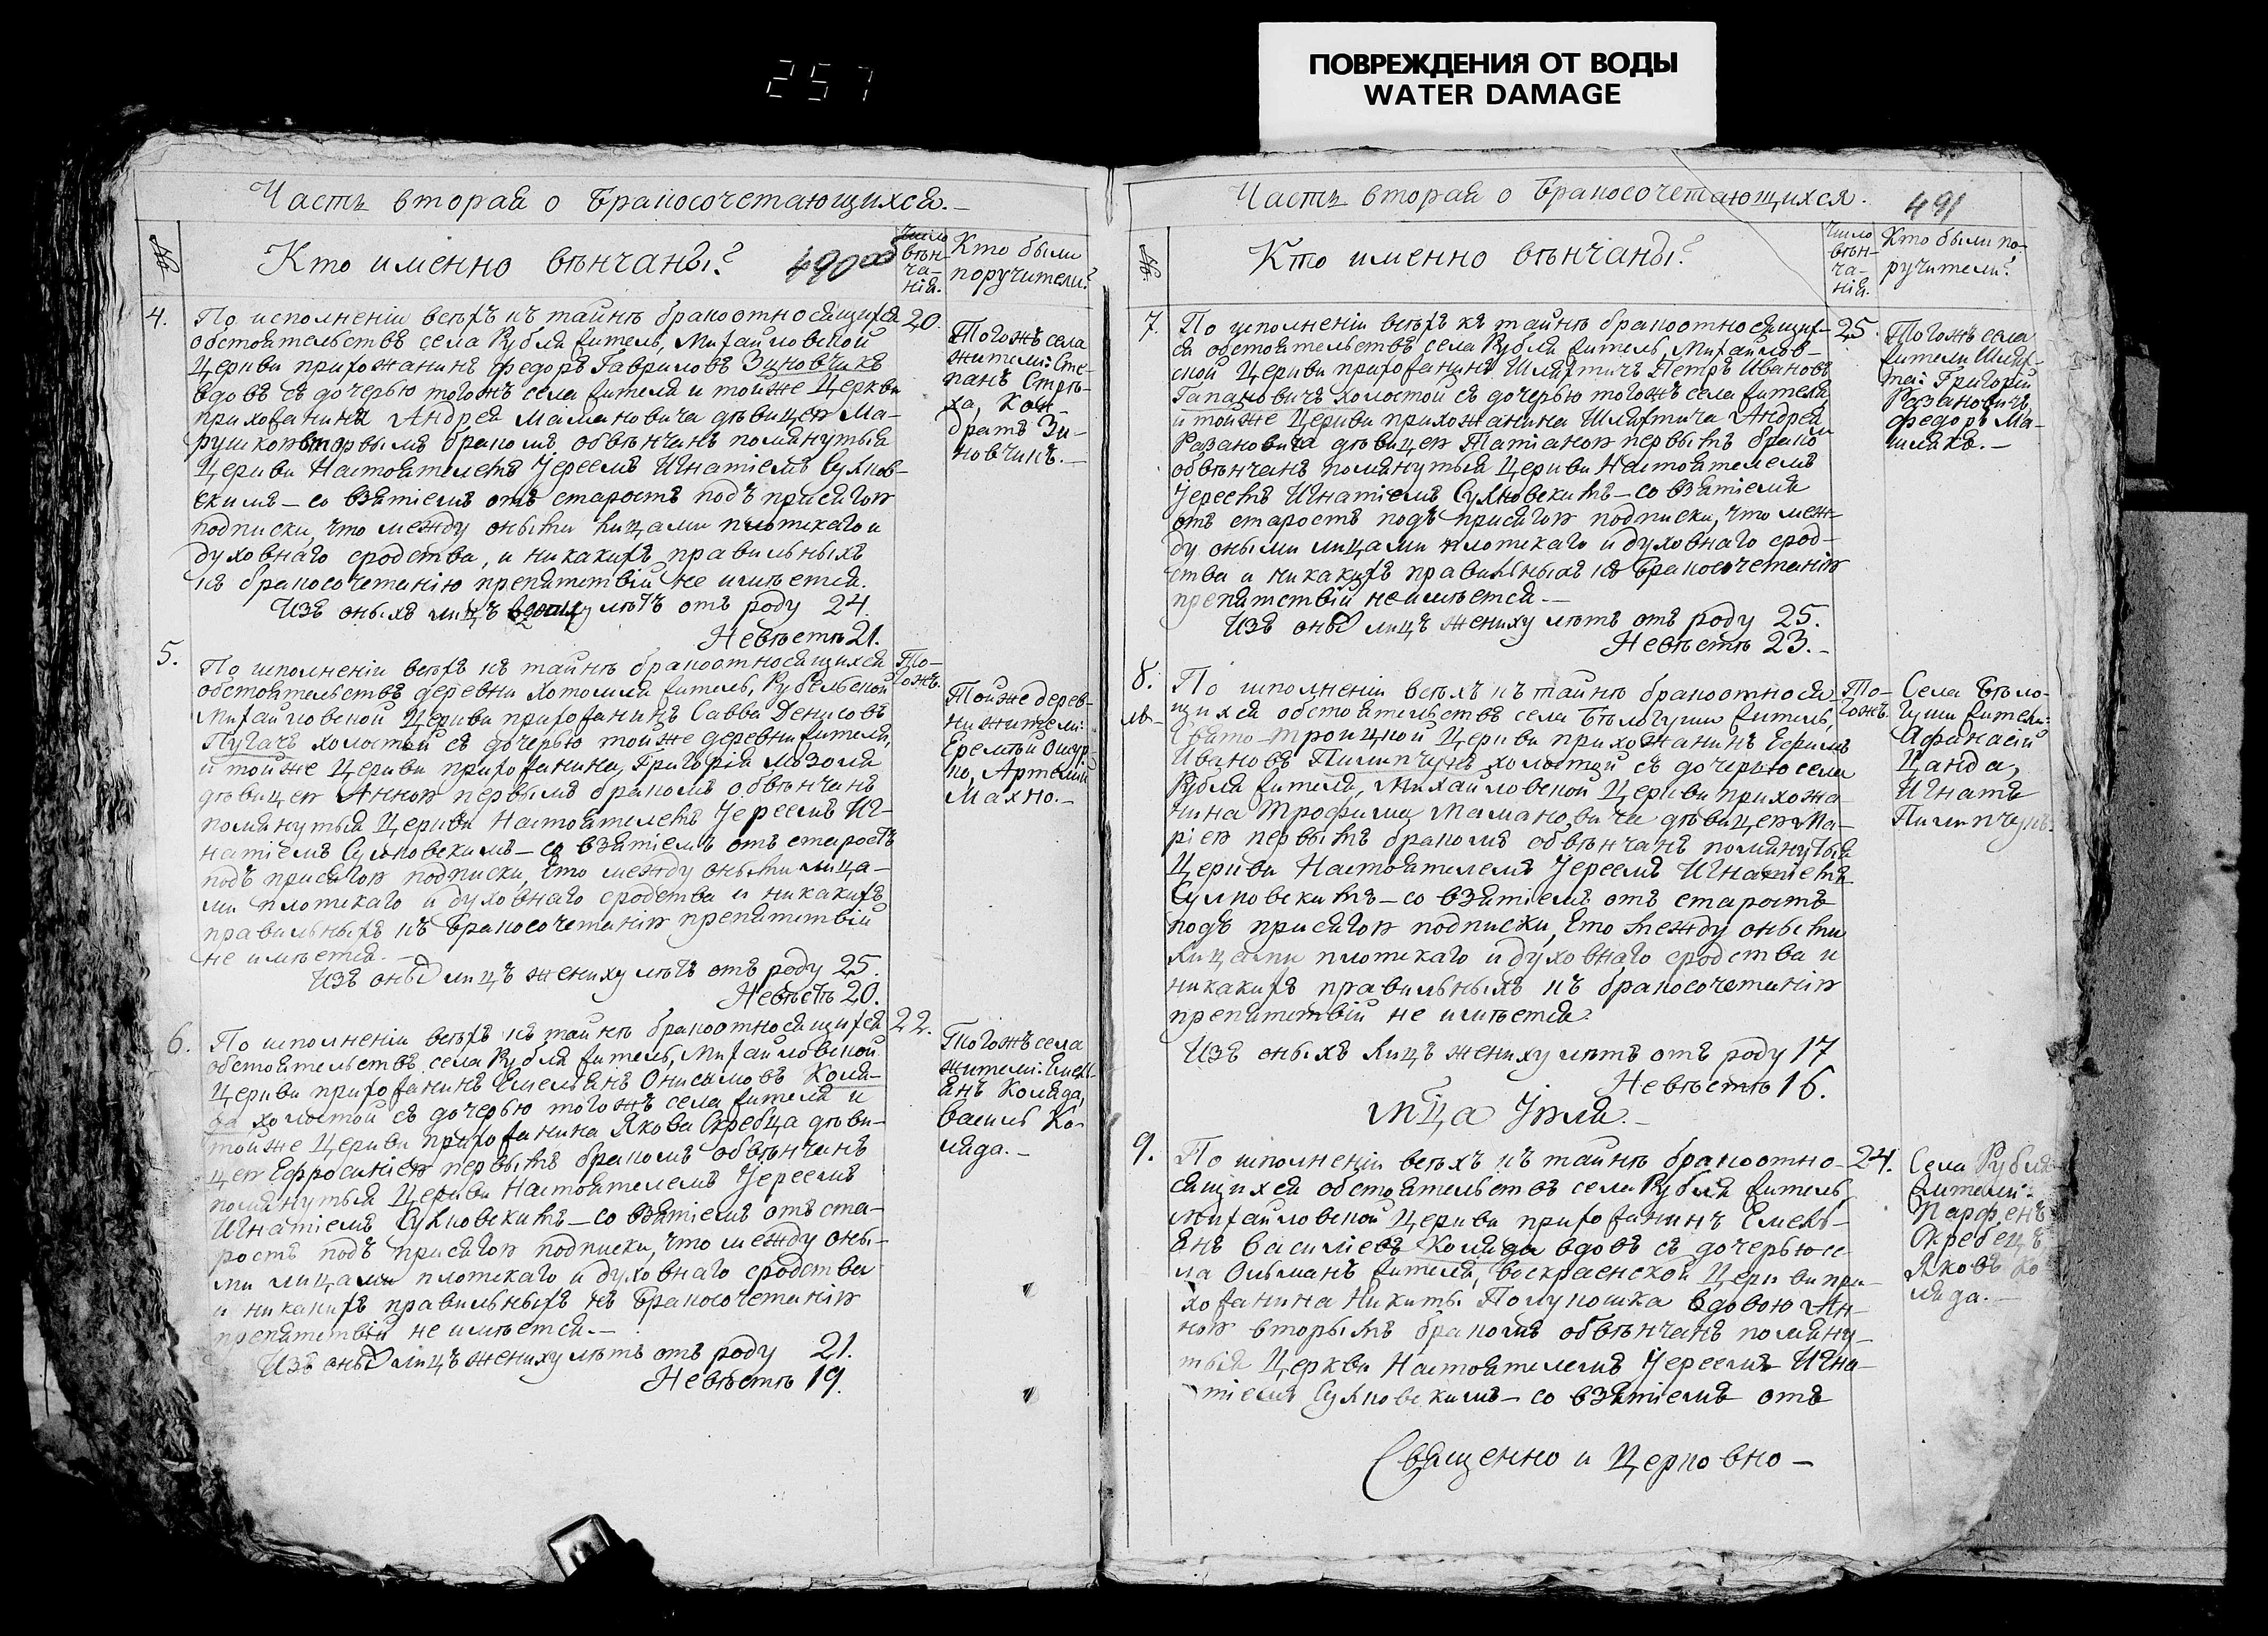 257
ПОВРЕЖДЕНИЯ ОТ ВОДЫ
WATER DAMAGE
Часть вторая о Бракосочетающихся.–
№
Кто именно вѣнчаны?
490 об
Число
вѣн-
ча-
нія.
Кто были
поручители?
4.
По исполненіи всѣхъ къ тайнѣ бракоотносящихся
обстоятельствъ села Рубля житель, Михайловской
Церкви прихожанинъ Федоръ Гавриловъ Зиновчикъ
вдовъ съ дочерью тогожъ села жителя и тойже Церкви
прихожанина Андрея Мамановича дѣвицею Ма-
рушкою вторымъ бракомъ обвѣнчанъ помянутыя
Церкви Настоятелемъ Іереемъ Игнатіемъ Сулков-
скимъ – со взятіемъ отъ старостъ подъ присягою
подписки, что между оными лицами плотскаго и
духовнаго сродства, и никакихъ правильныхъ
къ бракосочетанію препятствій не имѣется.
Изъ оныхъ лицъ вдовцу лѣтъ отъ роду 24.
Невѣстѣ 21.
20.
Тогожъ села
жители: Сте-
панъ Стрѣ-
ха, Кон-
дратъ Зи-
новчикъ.–
5.
По исполненіи всѣхъ къ тайнѣ бракоотносящихся
обстоятельствъ деревни Хотомля житель, Рубельской
Михайловской Церкви прихожанинъ Савва Денисовъ
Пугачъ холостый съ дочерью тойже деревни жителя,
и тойже Церкви прихожанина, Григорія Мозоля
дѣвицею Анною первымъ бракомъ обвѣнчанъ
помянутыя Церкви Настоятелемъ Іереемъ Иг-
натіемъ Сулковскимъ – со взятіемъ отъ старостъ
подъ присягою подписки, что между оными лица-
ми плотскаго и духовнаго сродства и никакихъ
правильныхъ къ Бракосочетанію препятствій
не имѣется.–
Изъ оныхъ лицъ жениху лѣтъ отъ роду 25.
Невѣстѣ 20.
То-
гожъ.
Тойже дерев-
ни жители:
Еремѣй
Артемій
Махно.–
6.
По исполненіи всѣхъ къ тайнѣ бракоотносящихся
обстоятельствъ села Рубля житель, Михайловской
Церкви прихожанинъ Емельянъ Онисимовъ Коля-
да холостой съ дочерью тогожъ села жителя и
тойже Церкви прихожанина Якова Скребца дѣви-
цею Ефросиніею первымъ бракомъ обвѣнчанъ
помянутыя Церкви Настоятелемъ Іереемъ
Игнатіемъ Сулковскимъ – со взятіемъ отъ ста-
ростъ подъ присягою подписки, что между оны-
ми лицами плотскаго и духовнаго сродства
и никакихъ правильныхъ къ Бракосочетанію
препятствій не имѣется.–
Изъ оныхъ лицъ жениху лѣтъ отъ роду 21.
Невѣстѣ 19.
22.
Тогожъ села
жители: Емель-
янъ Коляда,
Василь Ко-
ляда.–
Часть вторая о Бракосочетающихся.
491
№
Кто именно вѣнчаны?
Число
вѣн-
ча-
нія.
Кто были по-
ручители?
7.
По исполненіи всѣхъ къ тайнѣ бракоотносящих-
ся обстоятельствъ села Рубля житель, Михайлов-
ской Церкви прихожанинъ Шляхтичъ Петръ Ивановъ
Гапановичъ холостой съ дочерью тогожъ села жителя
и тойже Церкви прихожанина Шляхтича Андрея
Разановича дѣвицею Татіаною первымъ бракомъ
обвѣнчанъ помянутыя Церкви Настоятелемъ
Іереемъ Игнатіемъ Сулковскимъ – со взятіемъ
отъ старостъ подъ присягою подписки, что меж-
ду оными лицами плотскаго и духовнаго срод-
ства и никакихъ правильныхъ къ Бракосочетанію
препятствій не имѣется.–
Изъ оныхъ лицъ жениху лѣтъ отъ роду 25.
Невѣстѣ 23.–
25.
Тогожъ села
жители Шлях-
та: Григорій
Разановичъ,
Федоръ Ма-
шлякъ.–
8.
По исполненіи всѣхъ къ тайнѣ бракоотнося-
щихся обстоятельствъ села Бѣлогуши житель,
Свято-Троицкой Церкви прихожанинъ Ефимъ
Ивановъ Пилипчукъ холостой съ дочерью села
Рубля жителя, Михайловской Церкви прихожа-
нина Трофима Мамановича дѣвицею Ма-
ріею первымъ бракомъ обвѣнчанъ помянутыя
Церкви Настоятелемъ Іереемъ Игнатіемъ
Сулковскимъ – со взятіемъ отъ старостъ
подъ присягою подписки, что между оными
лицами плотскаго и духовнаго сродства и
никакихъ правильныхъ къ бракосочетанію
препятствій не имѣется.
Изъ оныхъ лицъ жениху лѣтъ отъ роду 17
Невѣстѣ 16.
То-
гожъ.
Села Бѣло-
гуши жители:
Афанасій
Цанда,
Игнатъ
Пилипчукъ.
мца Іюля.–
9.
По исполненіи всѣхъ къ тайнѣ бракоотно-
сящихся обстоятельствъ села Рубля житель
Михайловской Церкви прихожанинъ Емель-
янъ Васильевъ Коляда вдовъ съ дочерью се-
ла Ольманъ жителя, Воскресенской Церкви при-
хожанина Никиты Полукошка вдовою Ан-
ною вторымъ бракомъ обвѣнчанъ помяну-
тыя Церкви Настоятелемъ Іереемъ Игна-
тіемъ Сулковскимъ – со взятіемъ отъ
24.
Села Рубля
жители:
Парфенъ
Скребецъ
Яковъ Ко-
ляда.–
Священно и Церковно –